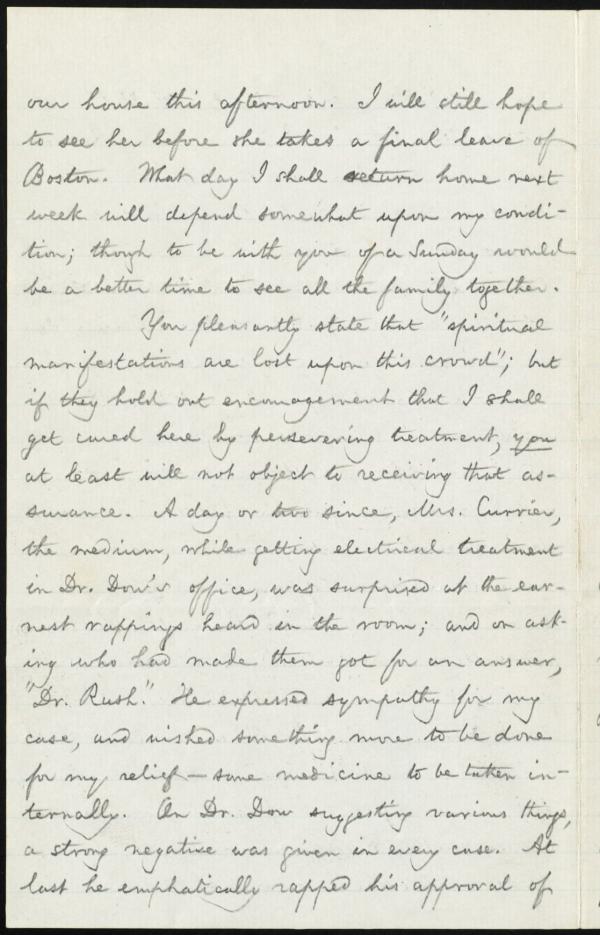 our house this afternoon. I will still hope
to see her before she takes a final leave of
Boston. What day I shall return home next
week will depend somewhat upon my condi-
tion; though to be with you of a Sunday would
be a better time to see all the family together.
You pleasantly state that "spiritual
manifestations are lost upon this crowd"; but
if they hold out encouragement that I shall
get cured here by persevering treatment, you
at least will not object to receiving that as-
surance. A day or two since, Mrs. Currier,
the medium, while getting electrical treatment
in Dr. Dow's office, was surprised at the ear-
nest rappings heard in the room; and on ask-
ing who had made them got for an answer,
"Dr. Rush." He expressed sympathy for my
case, and wished something more to be done
for my relief—some medicine to be taken in-
ternally. On Dr. Dow suggesting various things,
a strong negative was given in every case. At
last he emphatically rapped his approval of